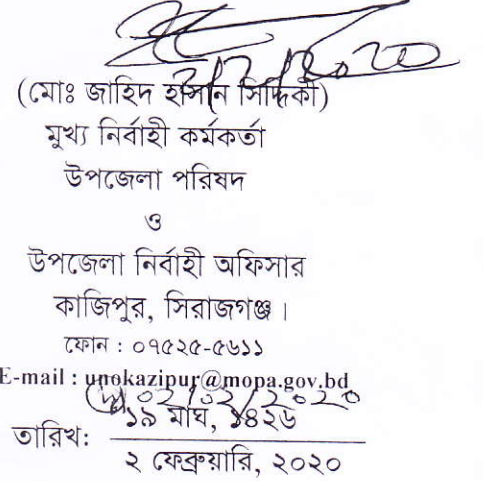 ২/২/২০২০
(মোঃ জাহিদ হাসান সিদ্দিকী)
মুখ্য নির্বাহী কর্মকর্তা
উপজেলা পরিষদ
ও
উপজেলা নির্বাহী অফিসার
কাজিপুর, সিরাজগঞ্জ।
ফোন : ০৭৫২৫-৫৬১১
E-mail : unokazipur@mopa.gov.bd
০২/০২/২০২০
১৯ মাঘ, ১৪২৬
তারিখ:
২ ফেব্রুয়ারি, ২০২০